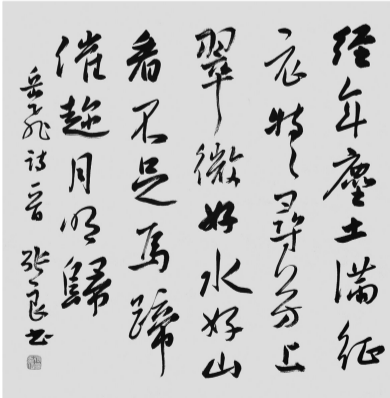 經年塵土滿征
衣特々尋芳上
翠微好水好山
看不足馬蹄
催趁月明歸
岳飛詩一首 張良書